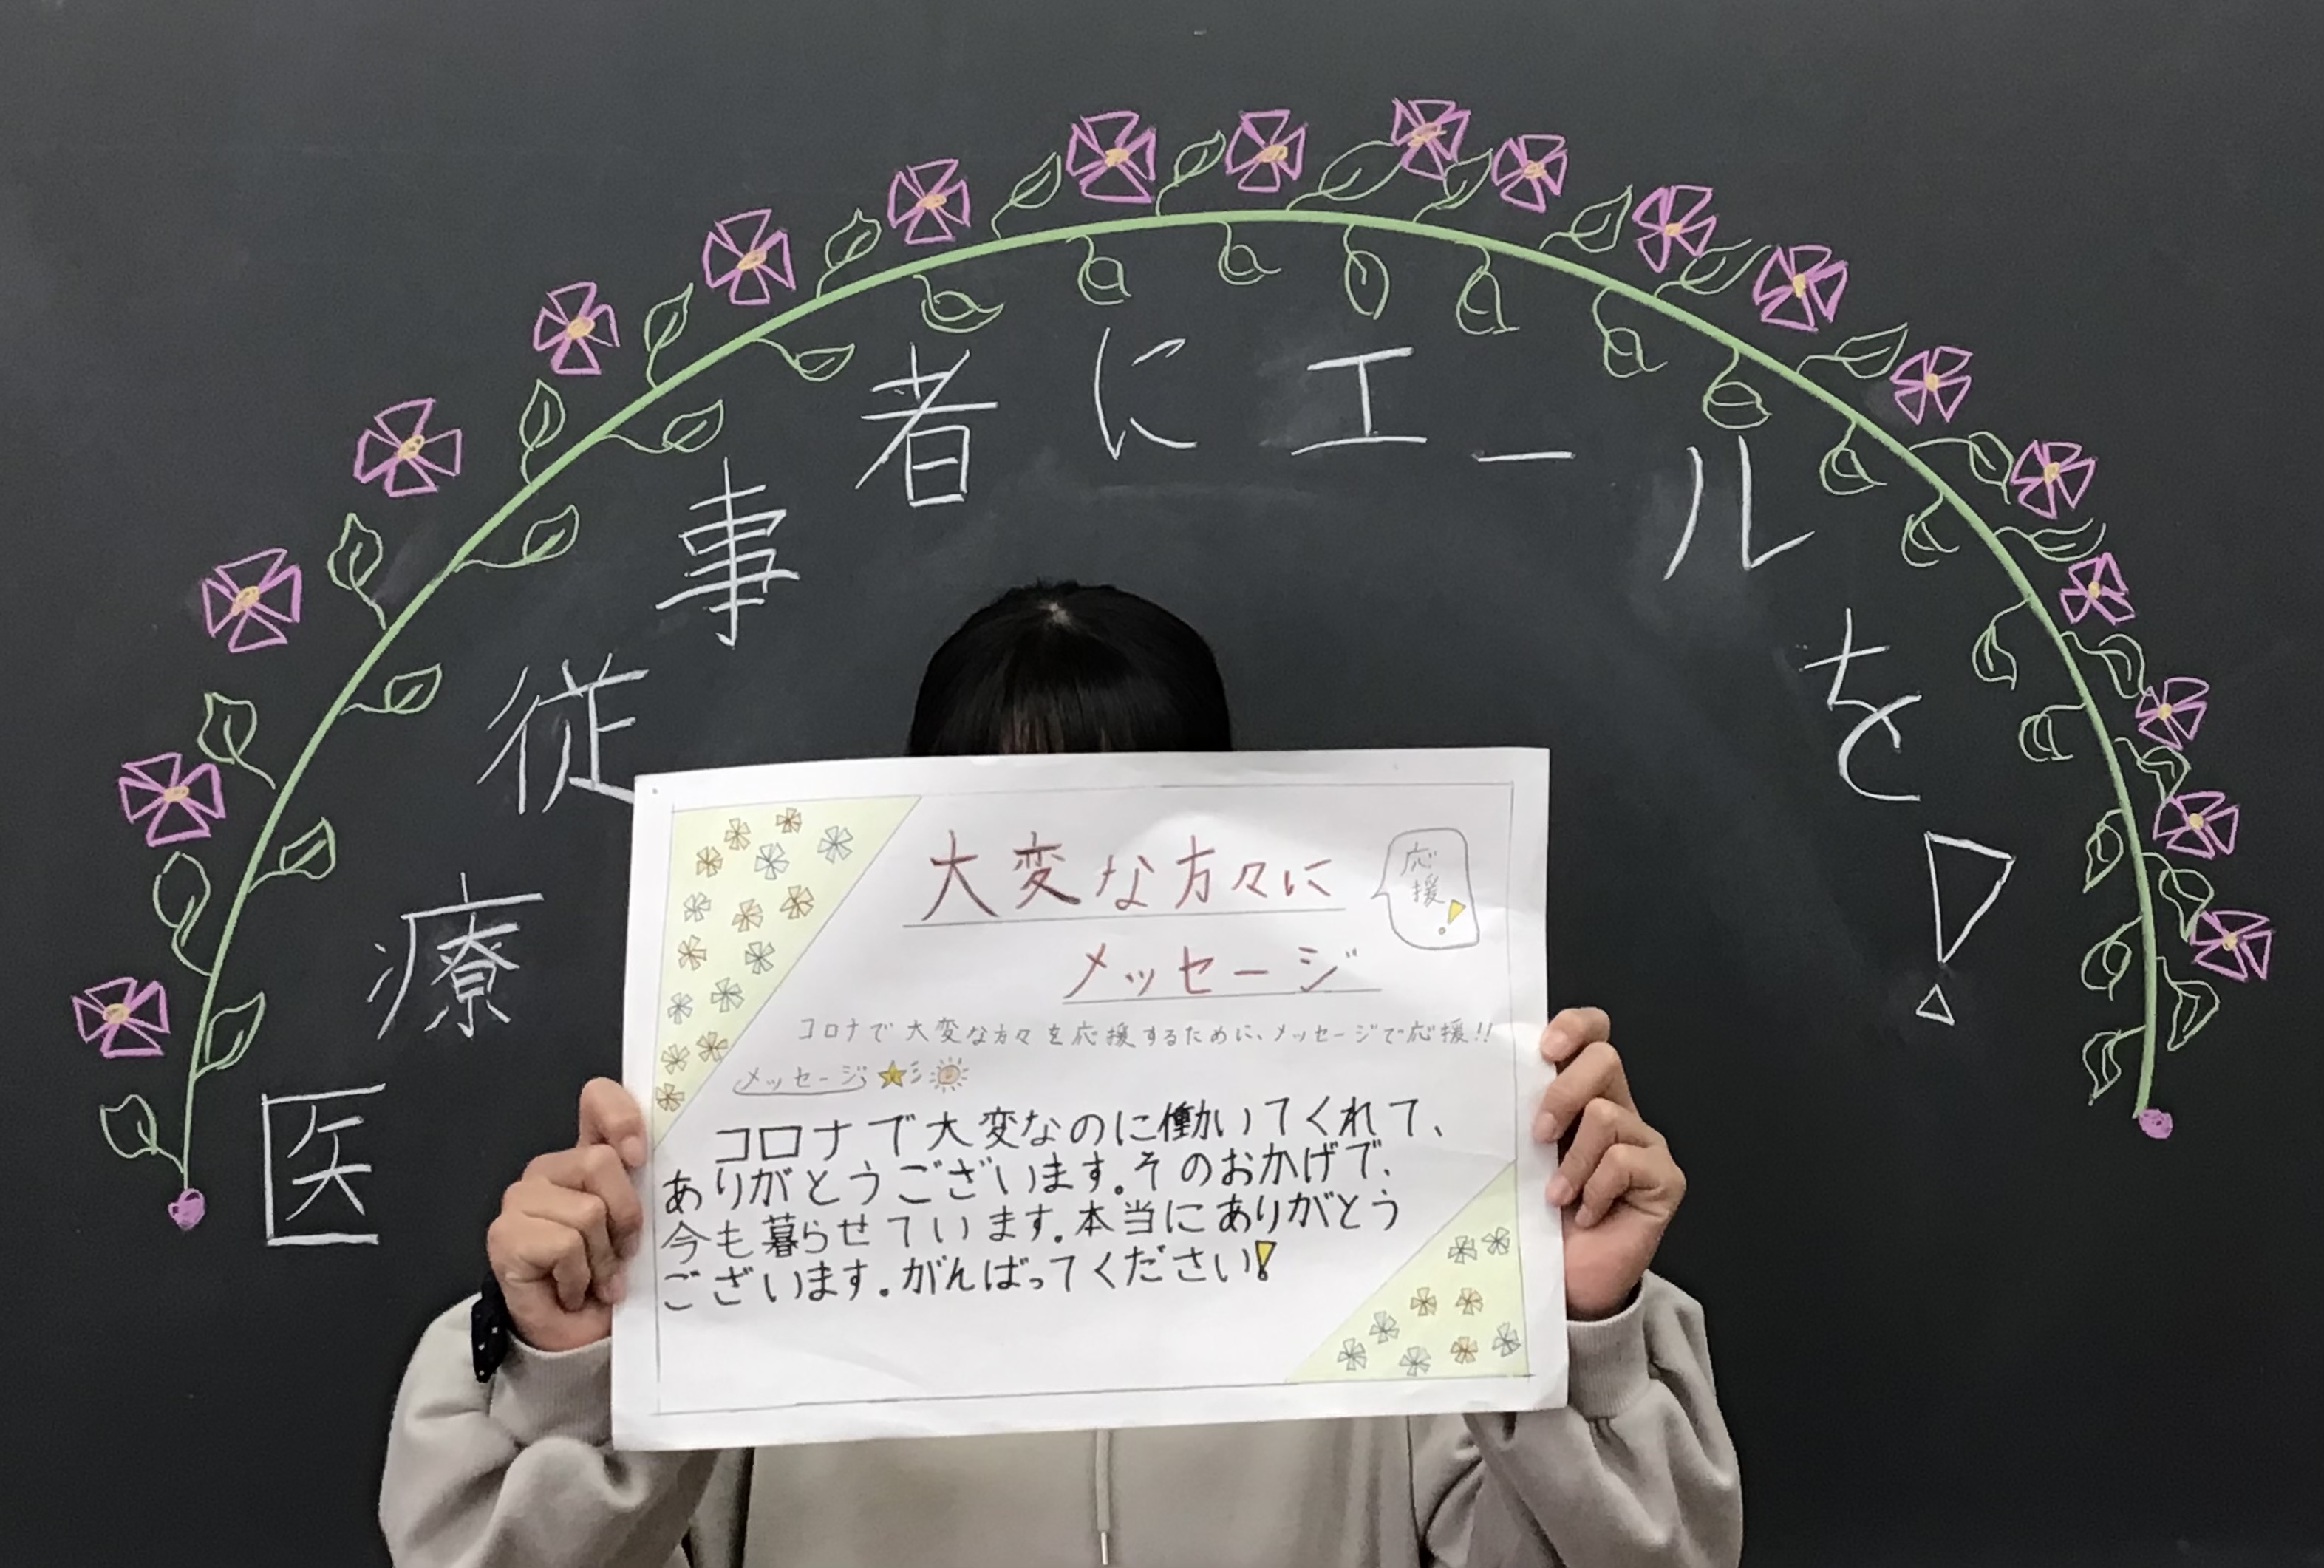 医療従事者にエールを!
大変な方々に
メッセージ
応
援!
コロナで大変な方々を応援するために、メッセージで応援!!
メッセージ
コロナで大変なのに働いてくれて、
ありがとうございます。そのおかげで、
今も暮らせています。本当にありがとう
ございます。がんばってください!